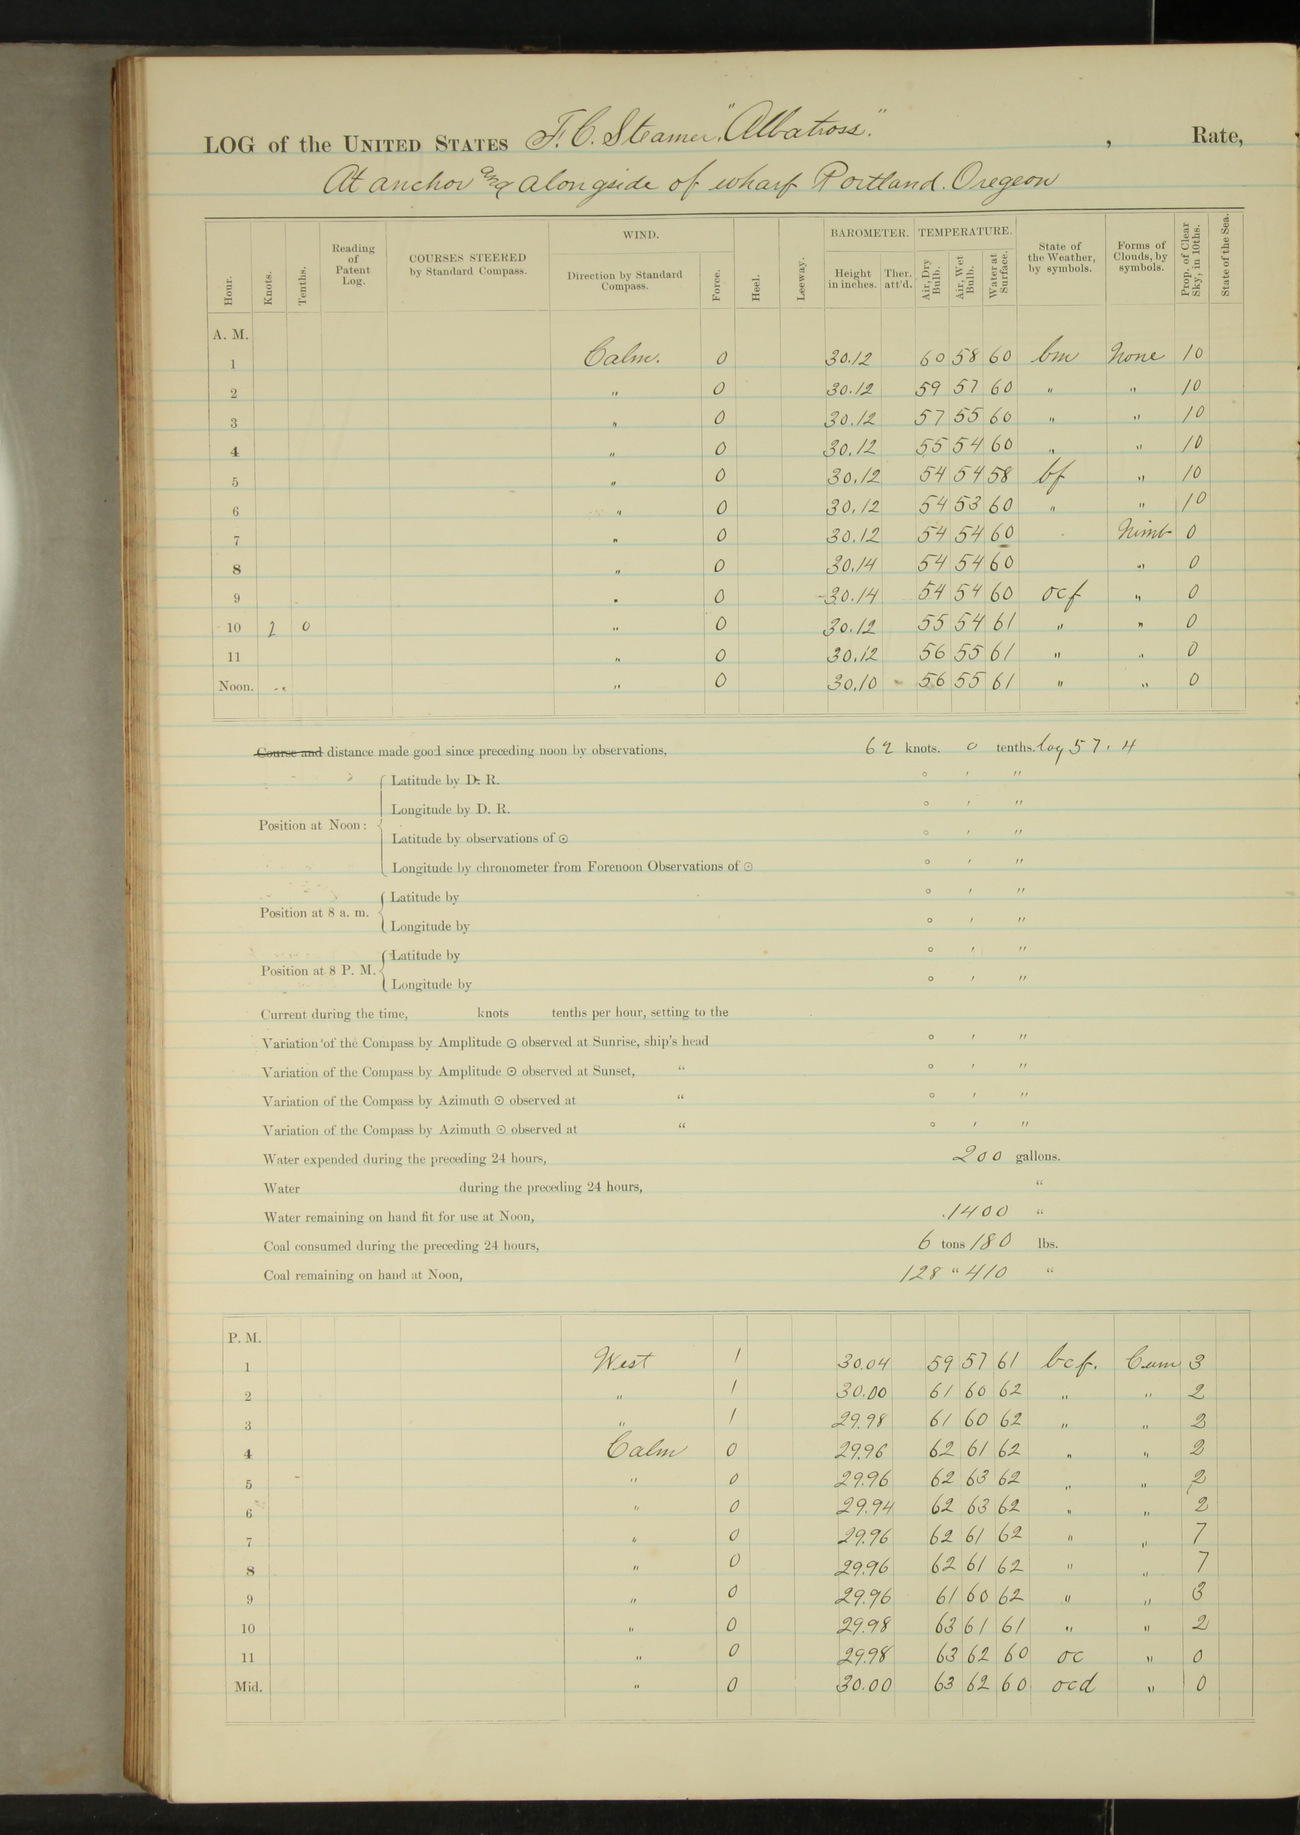 LOG of the UNITED STATES F. C. Steamer "Albatross" , Rate,
At anchor and alongside of wharf Portland. Oregeon
Hour. Knots. Tenths. Reading of Patent Log. COURSES STEERED by Standard Compass. WIND. Direction by Standard Compass. Force. Heel. Leeway. BAROMETER. Height in inches. Ther. att'd. TEMPERATURE. Air, Dry Bulb. Air, Wet Bulb. Water at Surface. State of the Weather, by symbols. Forms of Clouds, by symbols. Prop. of Clear Sky, in 10ths. State of the Sea.
A. M.
1 Calm. 0 30.12 60 58 60 bm None 10
2 " 0 30.12 59 57 60 " " 10
3 " 0 30.12 57 55 60 " " 10
4 " 0 30.12 55 54 60 " " 10
5 " 0 30.12 54 54 58 bf " 10
6 " 0 30.12 54 53 60 " " 10
7 " 0 30.12 54 54 60 Nimb 0
8 " 0 30.14 54 54 60 " 0
9 " 0 30.14 54 54 60 ocf " 0
10 2 0 " 0 30.12 55 54 61 " " 0
11 " 0 30.12 56 55 61 " " 0
Noon. " 0 30.10 56 55 61 " " 0
Course and distance made good since preceding noon by observations, 62 knots. 0 tenths. log 57.4
Latitude by D. R. ° ′ ″
Longitude by D. R. ° ′ ″
Position at Noon:
Latitude by observations of ☉ ° ′ ″
Longitude by chronometer from Forenoon Observations of ☉ ° ′ ″
Latitude by ° ′ ″
Position at 8 a. m.
Longitude by ° ′ ″
Latitude by ° ′ ″
Position at 8 P. M.
Longitude by ° ′ ″
Current during the time, knots tenths per hour, setting to the
Variation of the Compass by Amplitude ☉ observed at Sunrise, ship's head ° ′ ″
Variation of the Compass by Amplitude ☉ observed at Sunset, " ° ′ ″
Variation of the Compass by Azimuth ☉ observed at " ° ′ ″
Variation of the Compass by Azimuth ☉ observed at " ° ′ ″
Water expended during the preceding 24 hours, 200 gallons.
Water during the preceding 24 hours, "
Water remaining on hand fit for use at Noon, 1400 "
Coal consumed during the preceding 24 hours, 6 tons 180 lbs.
Coal remaining on hand at Noon, 128 " 410 "
P. M.
1 West 1 30.04 59 57 61 bcf. Cum 3
2 " 1 30.00 61 60 62 " " 2
3 " 1 29.98 61 60 62 " " 2
4 Calm 0 29.96 62 61 62 " " 2
5 " 0 29.96 62 63 62 " " 2
6 " 0 29.94 62 63 62 " " 2
7 " 0 29.96 62 61 62 " " 7
8 " 0 29.96 62 61 62 " " 7
9 " 0 29.96 61 60 62 " " 3
10 " 0 29.98 63 61 61 " " 2
11 " 0 29.98 63 62 60 oc " 0
Mid. " 0 30.00 63 62 60 ocd " 0